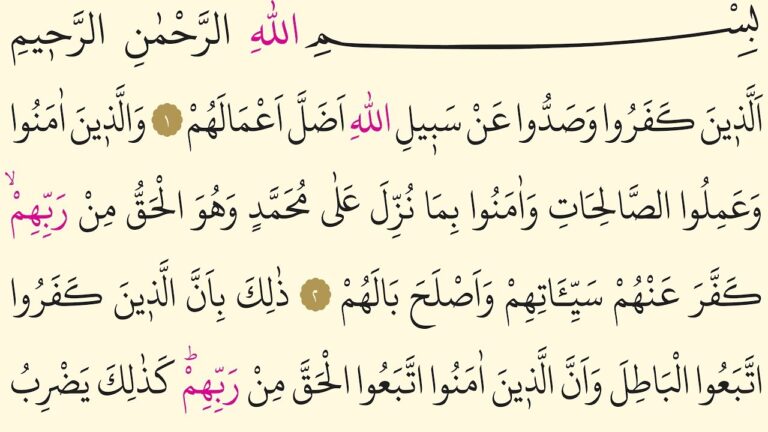 بِسْمِ اللّٰهِ الرَّحْمٰنِ الرَّح۪يمِ
اَلَّذ۪ينَ كَفَرُوا وَصَدُّوا عَنْ سَب۪يلِ اللّٰهِ اَضَلَّ اَعْمَالَهُمْ ١ وَالَّذ۪ينَ اٰمَنُوا
وَعَمِلُوا الصَّالِحَاتِ وَاٰمَنُوا بِمَا نُزِّلَ عَلٰى مُحَمَّدٍ وَهُوَ الْحَقُّ مِنْ رَبِّهِمْۙ
كَفَّرَ عَنْهُمْ سَيِّـَٔاتِهِمْ وَاَصْلَحَ بَالَهُمْ ٢ ذٰلِكَ بِاَنَّ الَّذ۪ينَ كَفَرُوا
اتَّبَعُوا الْبَاطِلَ وَاَنَّ الَّذ۪ينَ اٰمَنُوا اتَّبَعُوا الْحَقَّ مِنْ رَبِّهِمْۜ كَذٰلِكَ يَضْرِبُ